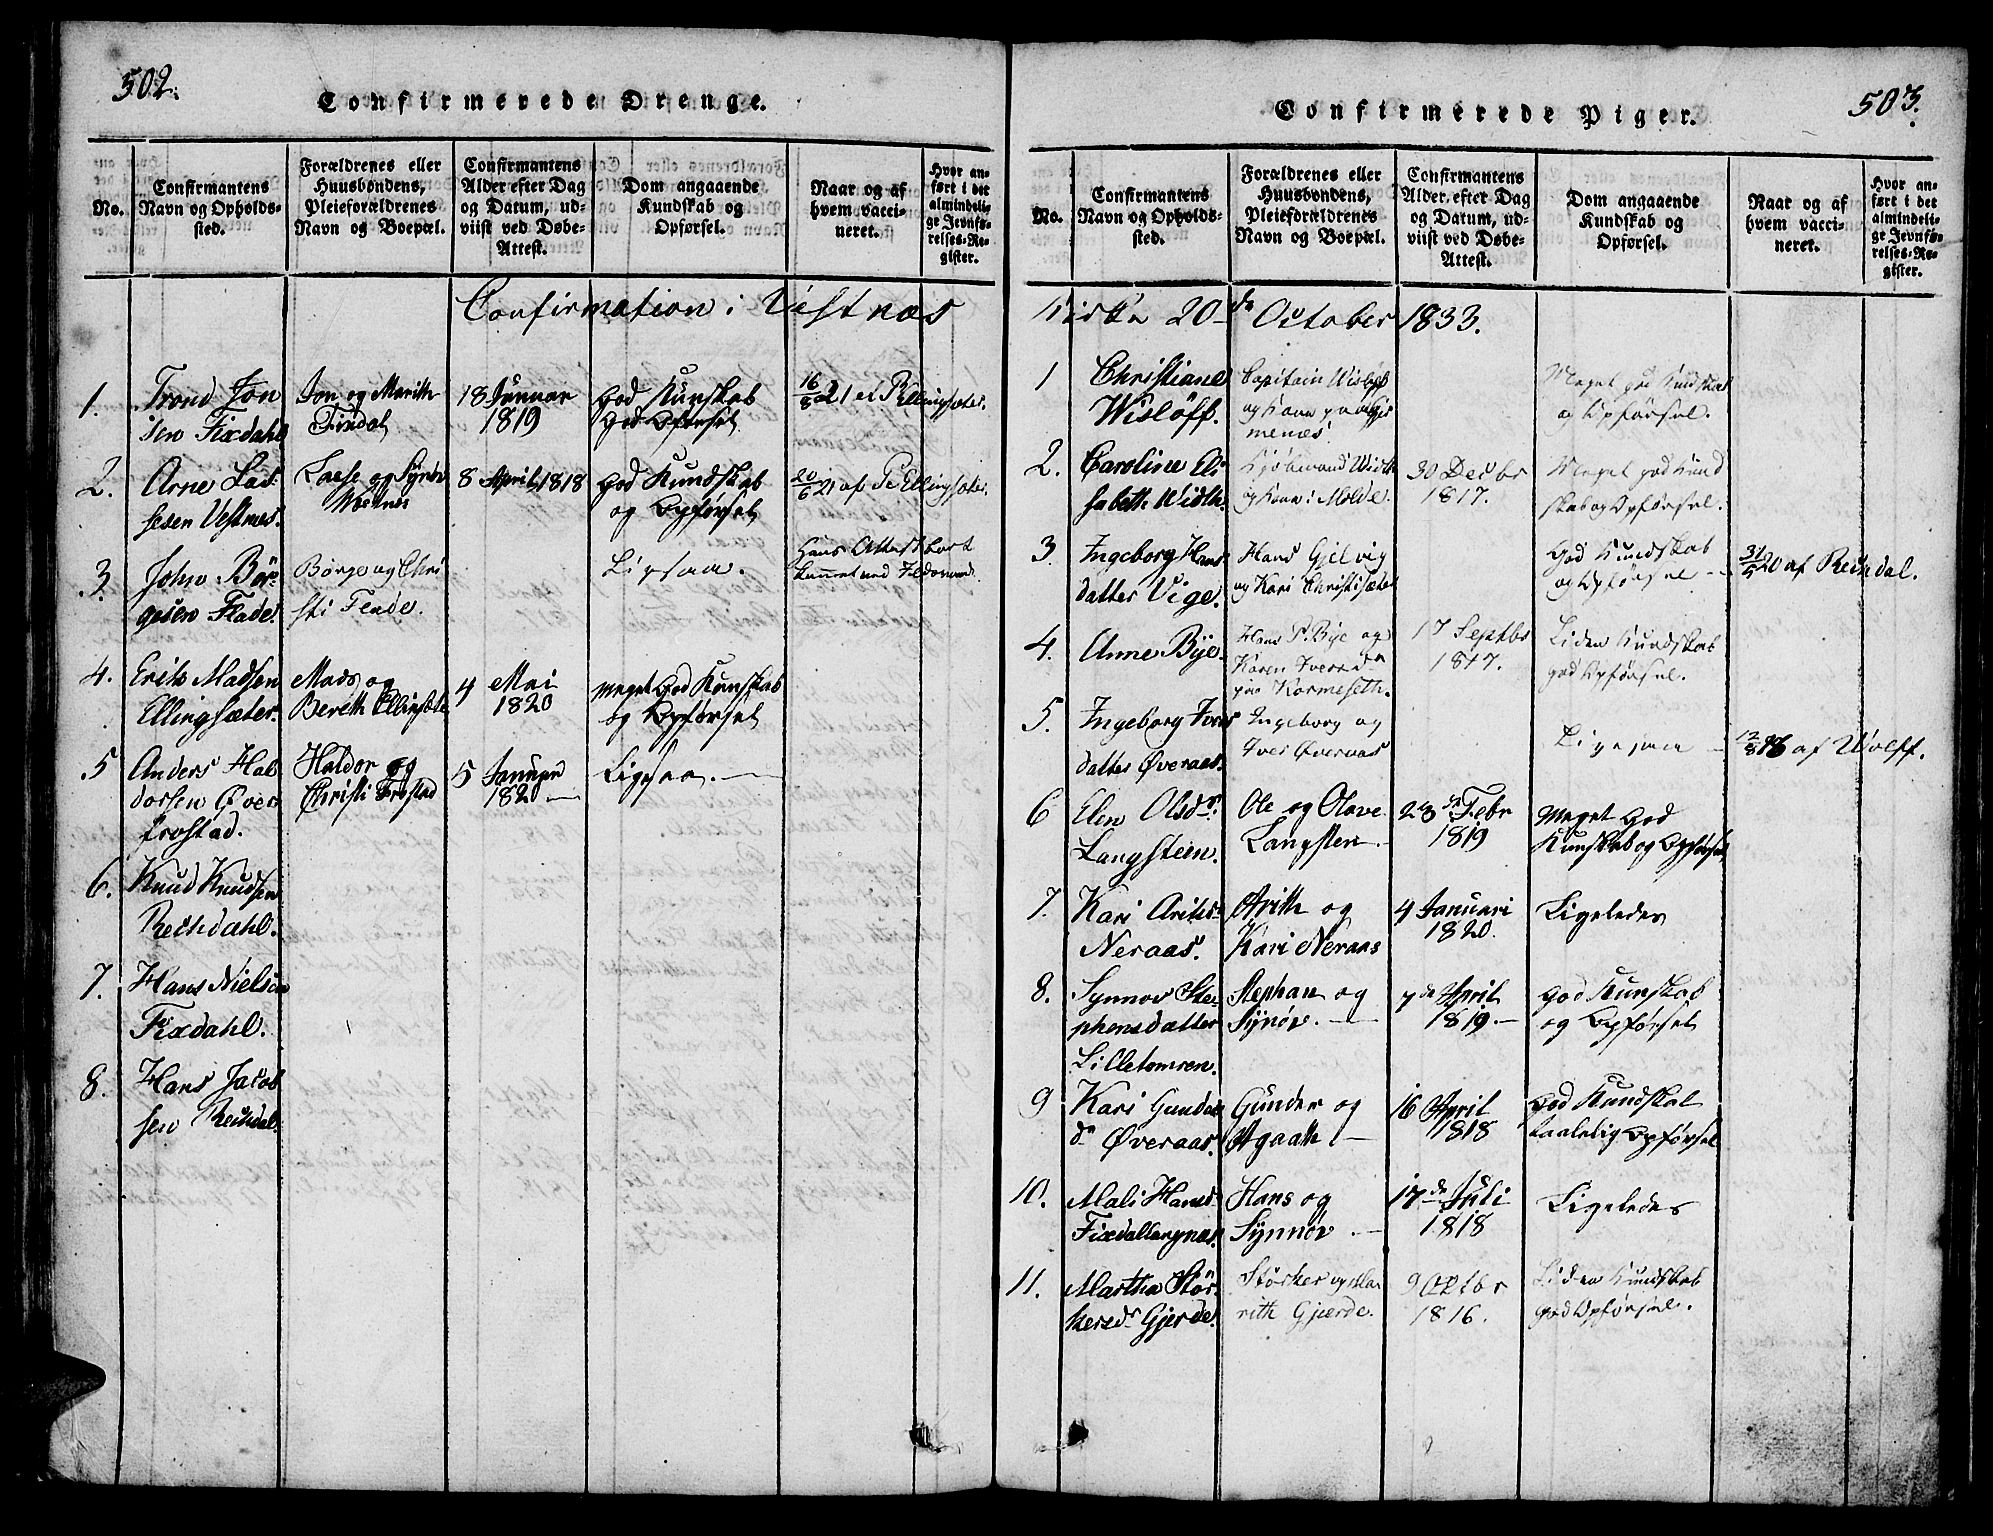 502.
Confirmerede Drenge.
No.
Confirmantens
Navn og Opholds-
sted.
Forældrenes eller
Huusbondens,
Pleieforældrenes
Navn og Boepæl.
Confirmantens
Alder efter Dag
og Datum, ud-
viist ved Døbe-
Attest.
Dom angaaende
Kundskab og
Opførsel.
Naar og af
hvem vacci-
neret.
Hvor an-
ført i det
almindeli-
ge Jevnfø-
relses-Re-
gister.
Confirmation i Vestnæs
1.
Trond Jon
sen Fixdahl
Jon og Marith
Fixdal
18 Januar
1819
God Kunskab
God Opførsel
16/8 21 af P Ellingsæter.
2.
Arne Las-
sesen Vestnes.
Lasse og Synøv
8 April 1818
God Kundskab
og Opførsel
20/6 21 af P Ellingsæter.
3.
John Bør-
gesen Flade.
Børge og Chri
sti Flade.
Ligesaa.
Hans Attest bort
4.
Erik Madsen
Ellingsæter.
Mads og
Bereth Ellingsæter
4 Mai
1820
Meget God Kunskab
og Opførsel
5
Anders Hal
dorsen Over
frostad.
Haldor og
Christi Frostad
5 Januar
1820
Ligesaa.
6.
Knud Knudsen
Rechdahl.
7.
Hans Nielsen
Fixdahl.
8.
Hans Jacob
sen Rechdal.
503.
Confirmerede Piger.
No.
Confirmantens
Navn og Opholds-
sted.
Forældrenes eller
Huusbondens,
Pleieforældrenes
Navn og Boepæl.
Confirmantens
Alder, efter Dag
og Datum, ud-
viist ved Døbe-
Attest.
Dom angaaende
Kundskab og
Opførsel.
Naar og af
hvem vacci-
neret.
Hvor an-
ført i det
almindeli-
ge Jevnfø-
relses-Re-
gister.
Kirke 20de October 1833.
1
Christiane
Wisløff.
Capitain Wisløff
og Kone paa Gjer
menæs.
Meget god Kundskab
og Opførsel.
2.
Caroline Eli
sabeth Width.
Kjøbmand Width
og Kone i Molde.
30 Decbr
1817.
Meget god Kund
skab og Opførsel.
3
Ingeborg Hans
datter Vige.
Hans Gjelvig
og Kari Christisæter
God Kundskab
og Opførsel
31/5 20 af Rechdal.
4.
Anne Bye.
Hans P. Bye og
Karen Iversdr
paa Kormeseth.
17 Septbr
1817.
Liden Kundskab
god Opførsel.
5.
Ingeborg Ivers
datter Øveraas.
Ingeborg og
Iver Øveraas
Ligesaa
12/8 18 af Wolff.
6
Elen Olsdr.
Langsteen.
Ole og Olave
Langsten.
23de Febr
1819
Meget God
Kunskab og Opførsel
7.
Kari Arithsdr
Neraas.
Arith og
Kari Neraas
4 Januari
1820.
Ligeledes
8.
Synnøv Ste-
phensdatter
Lilletomren.
Stephan og
Synøv.
7de April
1819.
God Kunskab
og Opførsel
9
Kari Gunder
dr Øveraas.
Gunder og
Agaath
16 April
1818
God Kundskab
taalelig Opførsel
10.
Mali Hansd
Hans og
Synnøv.
17de Juli
1818
Ligeledes
11.
Martha Stør-
kersdr Gjerde.
Størker og Ma
rith Gjærde.
9 Octbr
1816.
Liden Kundskab
god Opførsel.